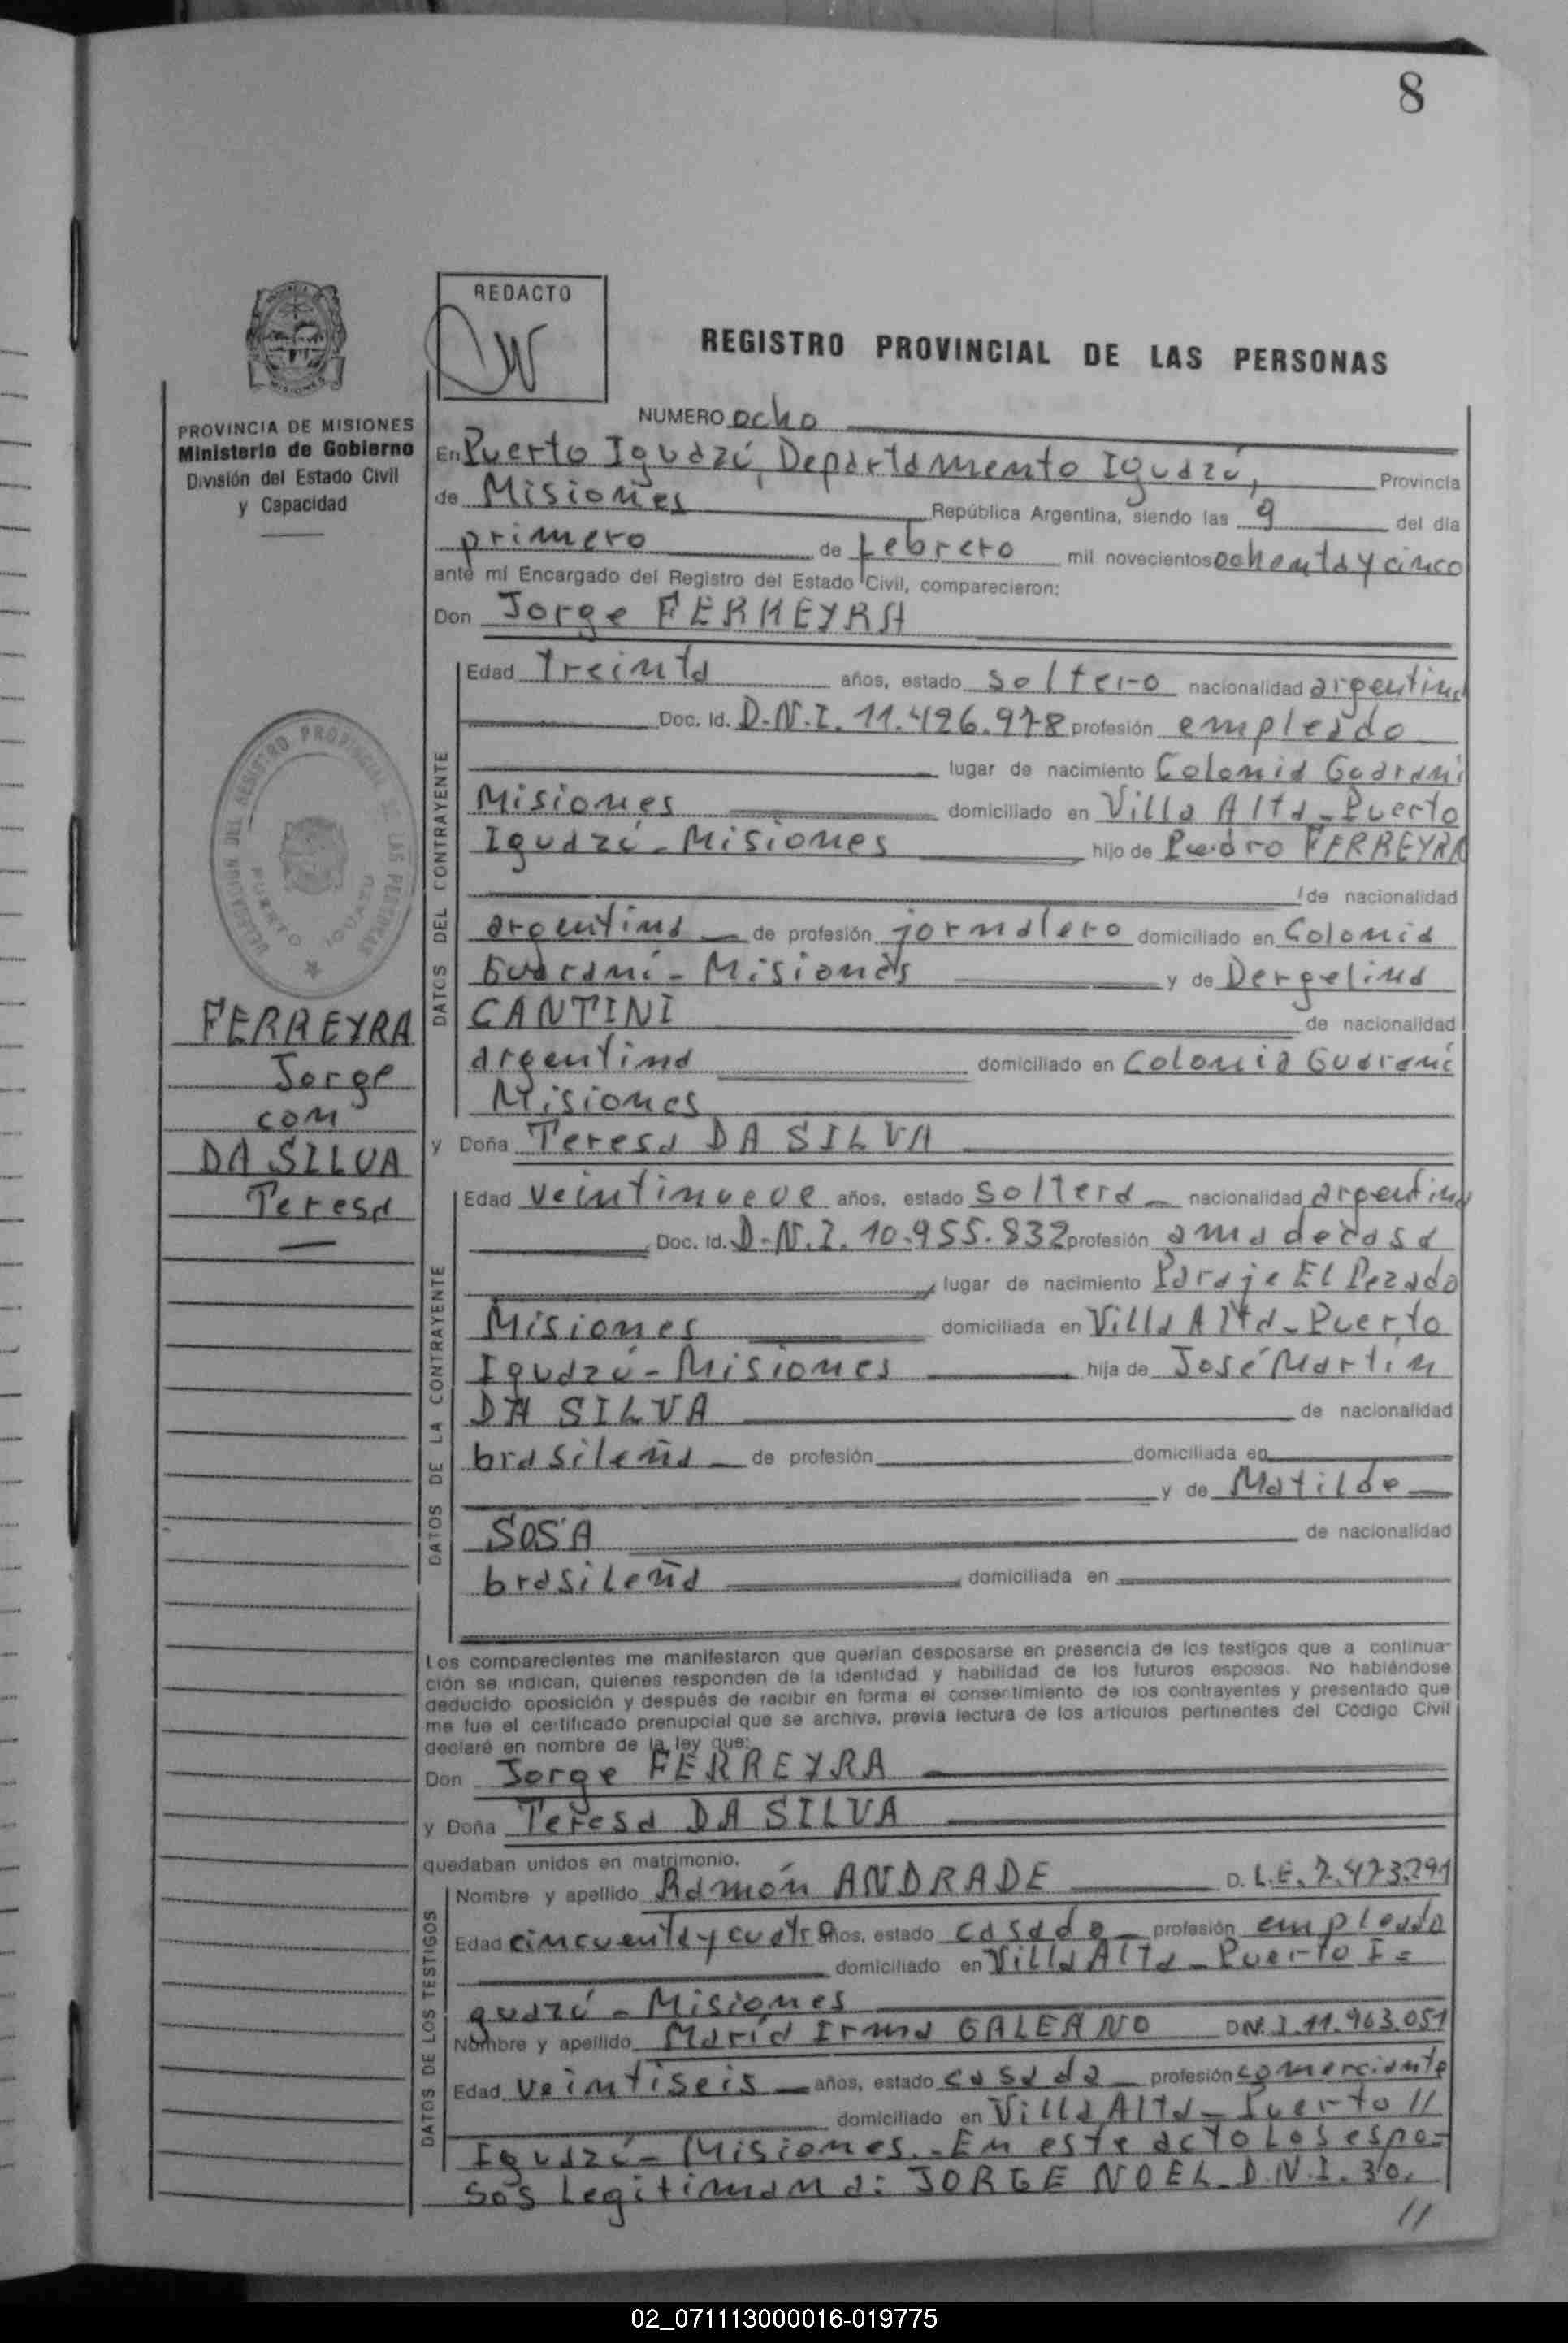 8
REDACTO
REGISTRO PROVINCIAL DE LAS PERSONAS
PROVINCIA DE MISIONES
Ministerio de Gobierno
División del Estado Civil
y Capacidad
DELEGACION DEL REGISTRO PROVINCIAL DE LAS PERSONAS
PUERTO IGUAZU
FERREYRA
Jorge
con
DA SILVA
Teresa
NUMERO ocho
En Puerto Iguazú, Departamento Iguazú, Provincia
de Misiones República Argentina, siendo las 9 del día
primero de febrero mil novecientos ochenta y cinco
ante mí Encargado del Registro del Estado Civil, comparecieron:
Don Jorge FERREYRA
DATOS DEL CONTRAYENTE
Edad treinta años, estado soltero nacionalidad argentina
Doc. Id. D.N.I. 11.426.978 profesión empleado
lugar de nacimiento Colonia Guaraní
Misiones domiciliado en Villa Alta - Puerto
Iguazú - Misiones hijo de Pedro FERREYRA
de nacionalidad
argentina de profesión jornalero domiciliado en Colonia
Guaraní - Misiones y de Dergelina
CANTINI de nacionalidad
argentina domiciliado en Colonia Guaraní
Misiones
y Doña Teresa DA SILVA
DATOS DE LA CONTRAYENTE
Edad veintinueve años, estado soltera nacionalidad argentina
Doc. Id. D.N.I. 10.955.832 profesión ama de casa
lugar de nacimiento Paraje El Pezado
Misiones domiciliada en Villa Alta - Puerto
Iguazú - Misiones hija de José Martín
DA SILVA de nacionalidad
brasileña de profesión domiciliada en
y de Matilde
SOSA de nacionalidad
brasileña domiciliada en
Los comparecientes me manifestaron que querían desposarse en presencia de los testigos que a continua-
ción se indican, quienes responden de la identidad y habilidad de los futuros esposos. No habiéndose
deducido oposición y después de recibir en forma el consentimiento de los contrayentes y presentado que
me fue el certificado prenupcial que se archiva, previa lectura de los artículos pertinentes del Código Civil
declaré en nombre de la ley que:
Don Jorge FERREYRA
y Doña Teresa DA SILVA
quedaban unidos en matrimonio.
DATOS DE LOS TESTIGOS
Nombre y apellido Ramón ANDRADE D. L.E. 7.473.291
Edad cincuenta y cuatro años, estado casado profesión empleado
domiciliado en Villa Alta - Puerto I=
guazú - Misiones
Nombre y apellido María Irma GALEANO DN.I. 11.963.051
Edad veintiseis años, estado casada profesión comerciante
domiciliado en Villa Alta - Puerto //
Iguazú - Misiones.- En este acto los espo-
sos legitiman a: JORGE NOEL D.N.I. 30.
//
02_071113000016-019775